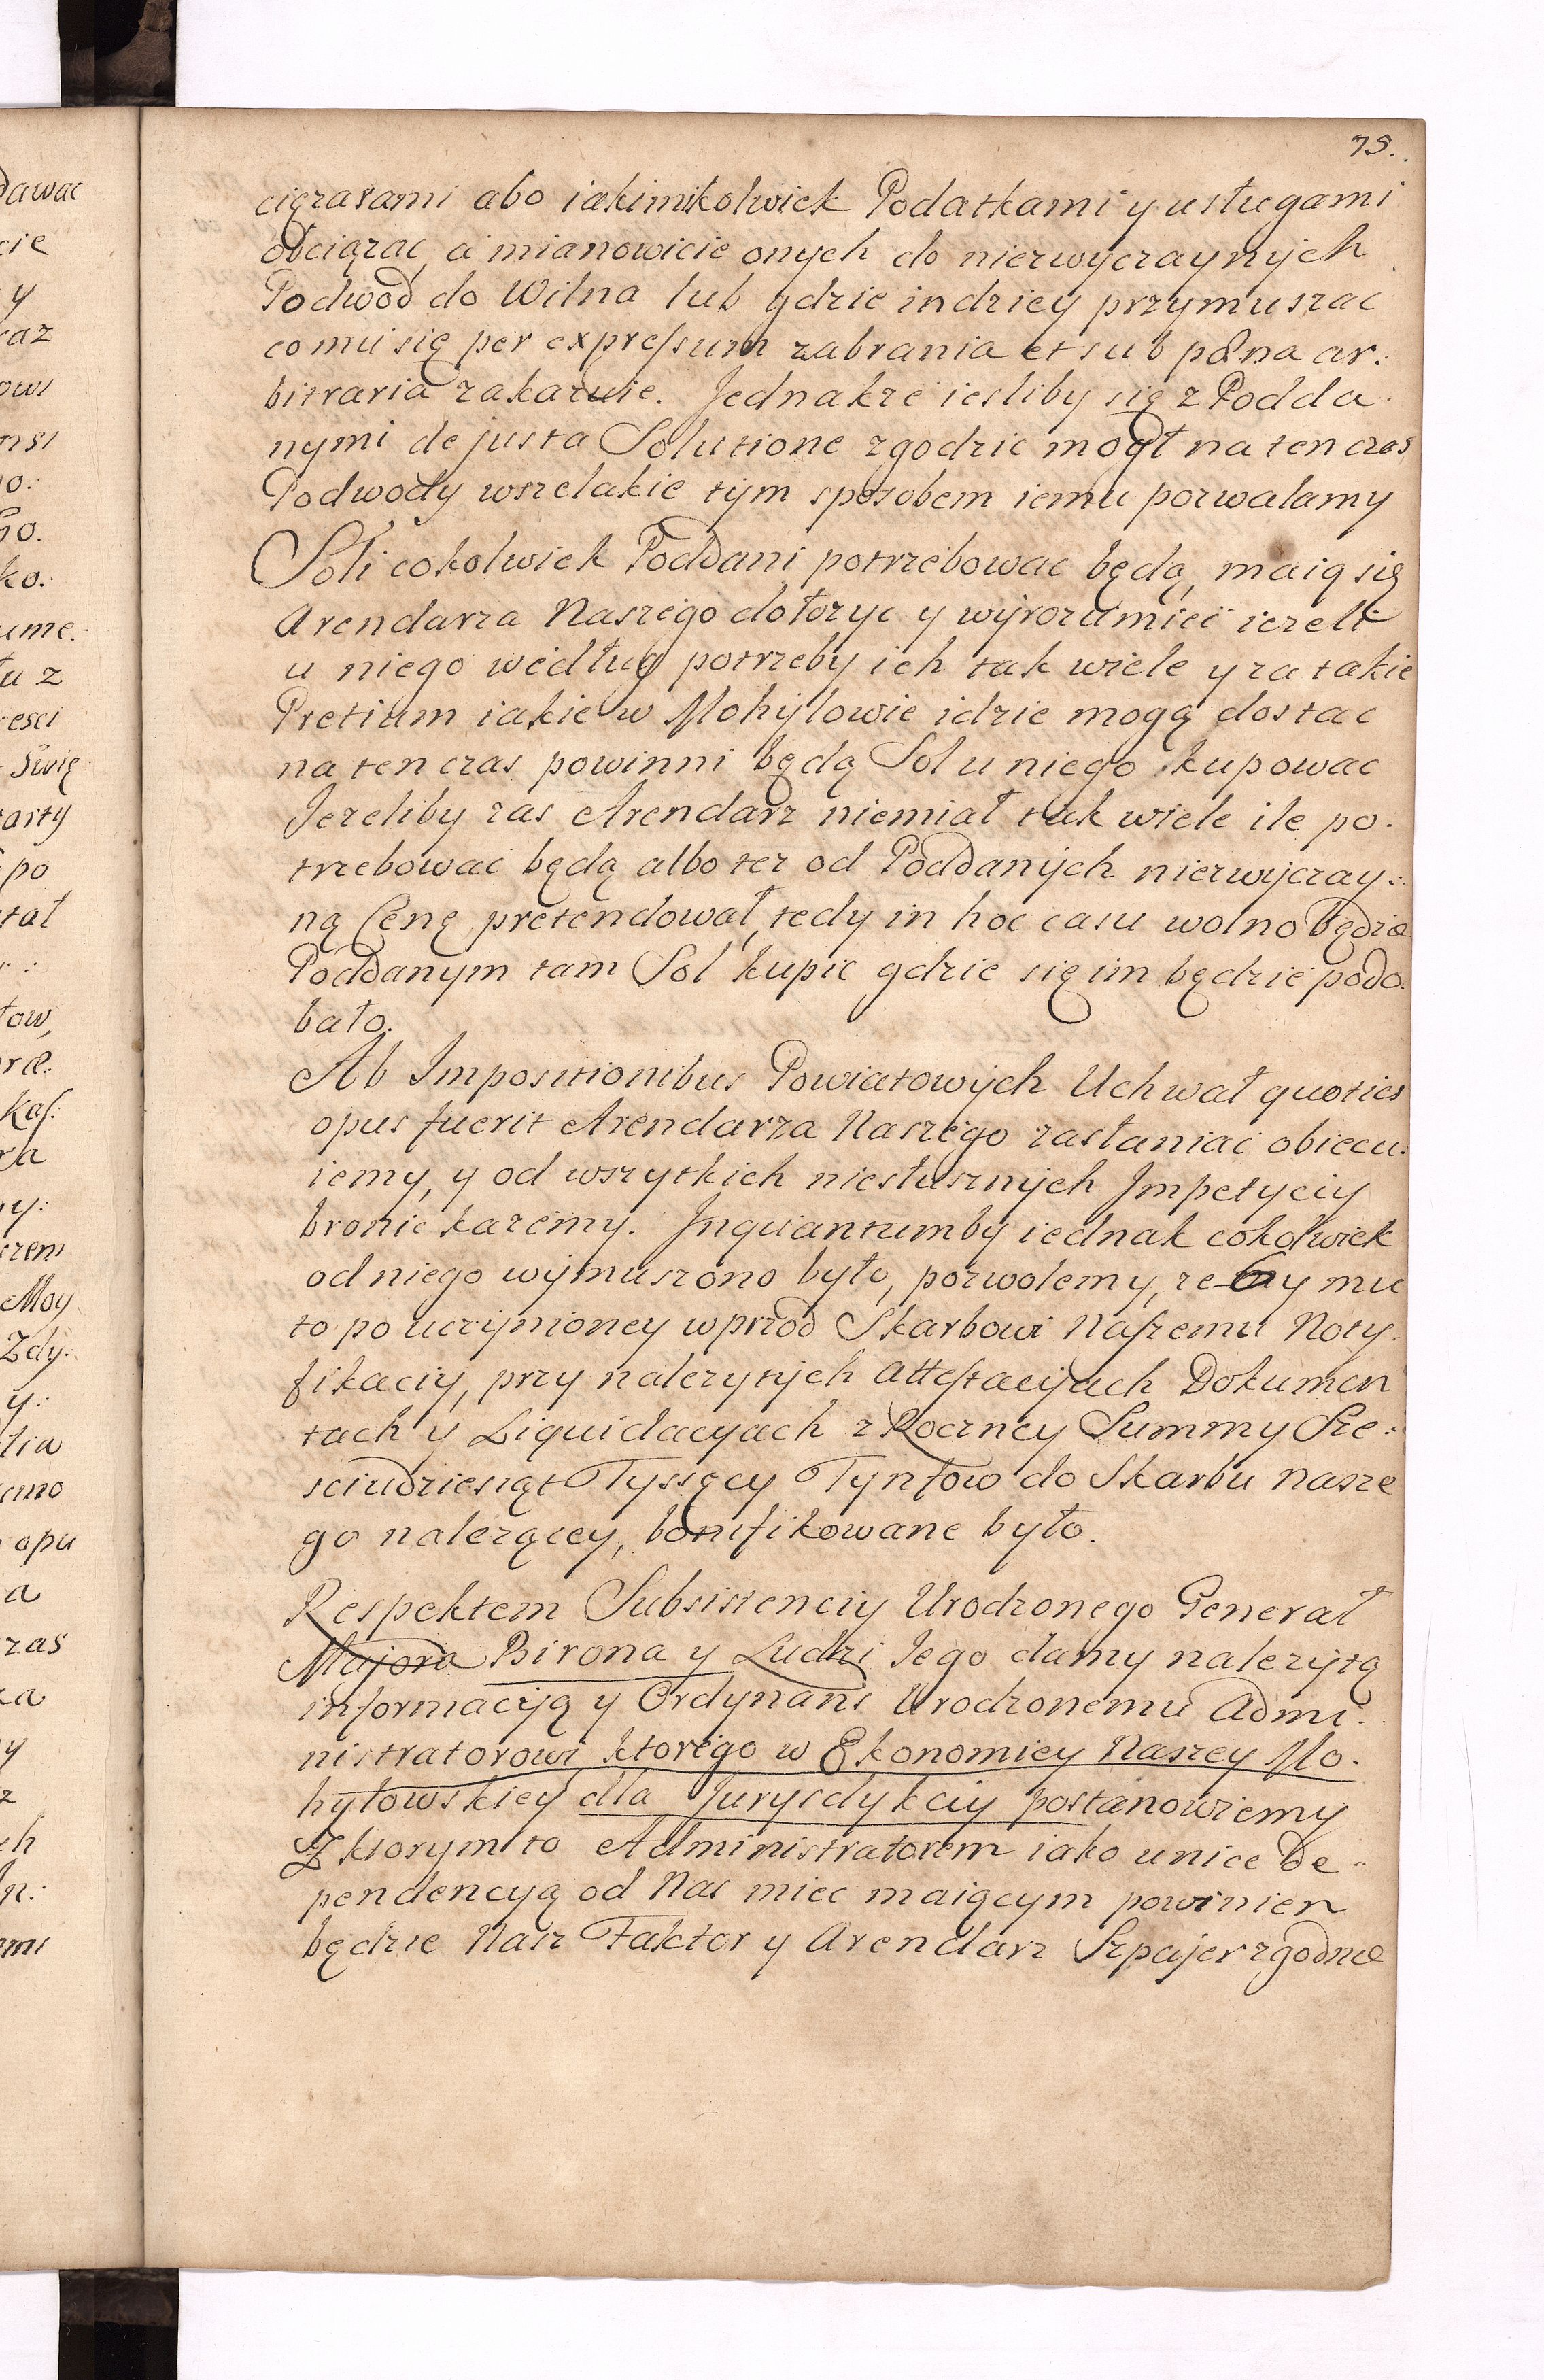 75.
cięzarami abo iakimikolwiek Podatkami y usługami
obciązac, a mianowicie onych do niezwyczaynych
Podwod do Wilna lub gdzie indziey przymuszac
co mu się per expressum zabrania et sub pœna ar:
bitraria zakazuie. Jednakze iesliby się z Podda
nymi de justa Solutione zgodzic mogł na ten czas
Podwody wszelakie tym sposobem iemu pozwalamy
Soli cokolwiek Poddani potrzebowac będą, maią się
Arendarza Naszego dołozyc y wyrozumiec iezeli
u niego według potrzeby ich tak wiele y za takie
Pretium iakie w Mohylowie idzie mogą dostac
na ten czas powinni będą Sol u niego kupowac
Jezeliby zas Arendarz niemiał tak wiele ile po.
trzebowac będą albo tez od Poddanych niezwyczay:
ną Cenę pretendował, tedy in hoc casu wolno będzie
Poddanym tam Sol kupic gdzie się im będzie podo.
bało.
Ab Impositionibus Powiatowych Uchwał quoties
opus fuerit Arendarza Naszego zasłaniac obiecu:
iemy, y od wszytkich niesłusznych Impetyciy
bronic kazemy. Inquantumby iednak cokolwiek
od niego wymuszono było, pozwolemy, ze by mu
to po uczynioney wprzod Skarbowi Naszemu Noty.
fikaciy, przy nalezytych attestacyach Dokumen
tach y Liquidacyach z Roczney Summy Sze:
sciudziesiąt Tysięcy Tynfow do Skarbu Nasze
go nalezącey, bonifikowane było.
Respektem Subsistenciy Urodzonego Generał
Majora Birona y Ludzi Jego damy nalezytą
informacyą y Ordynans Urodzonemu Admi.
nistratorowi ktorego w Ekonomiey Naszey Mo.
hylowskiey dla Jurysdykciy postanowiemy
Z ktorym to Administratorem iako unice De..
pendencyą od Nas miec maiącym powinien
będzie Nasz Faktor y Arendarz Szpajer zgodne